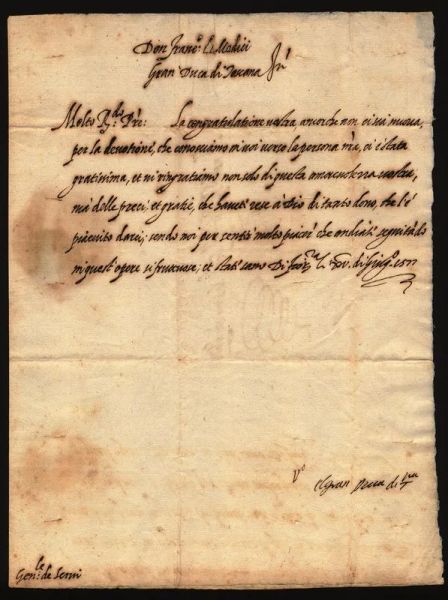 Don Franc.º de Medici
Gran Duca di Toscana
Molto R.do P.re: La congratulatione vostra ancorche non ci sia nuova,
per la devotione, che conosciamo in voi verso la persona n'ra, ci è stata
gratissima, et vi ringratiamo non solo di questa amorevolezza vostra,
mà delle preci: et gratie, che havete rese à Dio di tanto dono, che l'è
piaciuto darci, sendo noi per sentir molto piacer che andiate seguitādo
in quest' opere si fruttuose; et state sano Di Fior.za l. di Giug.º 1577
V.º
Il gran Duca di T.na
Gen.le de Servi